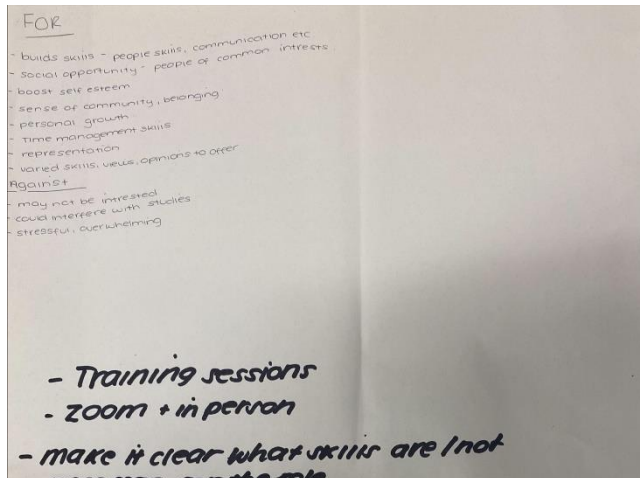 FOR
- builds skills - people skills, communication etc
- social opportunity - people of common intrests
- boost self esteem
- sense of community, belonging
- personal growth
- Time management skills
- representation
- varied skills, views, opinions to offer
Against
- may not be intrested
- could interfere with studies
- stressful, overwhelming
- Training sessions
- zoom + in person
- make it clear what skills are / not
the role